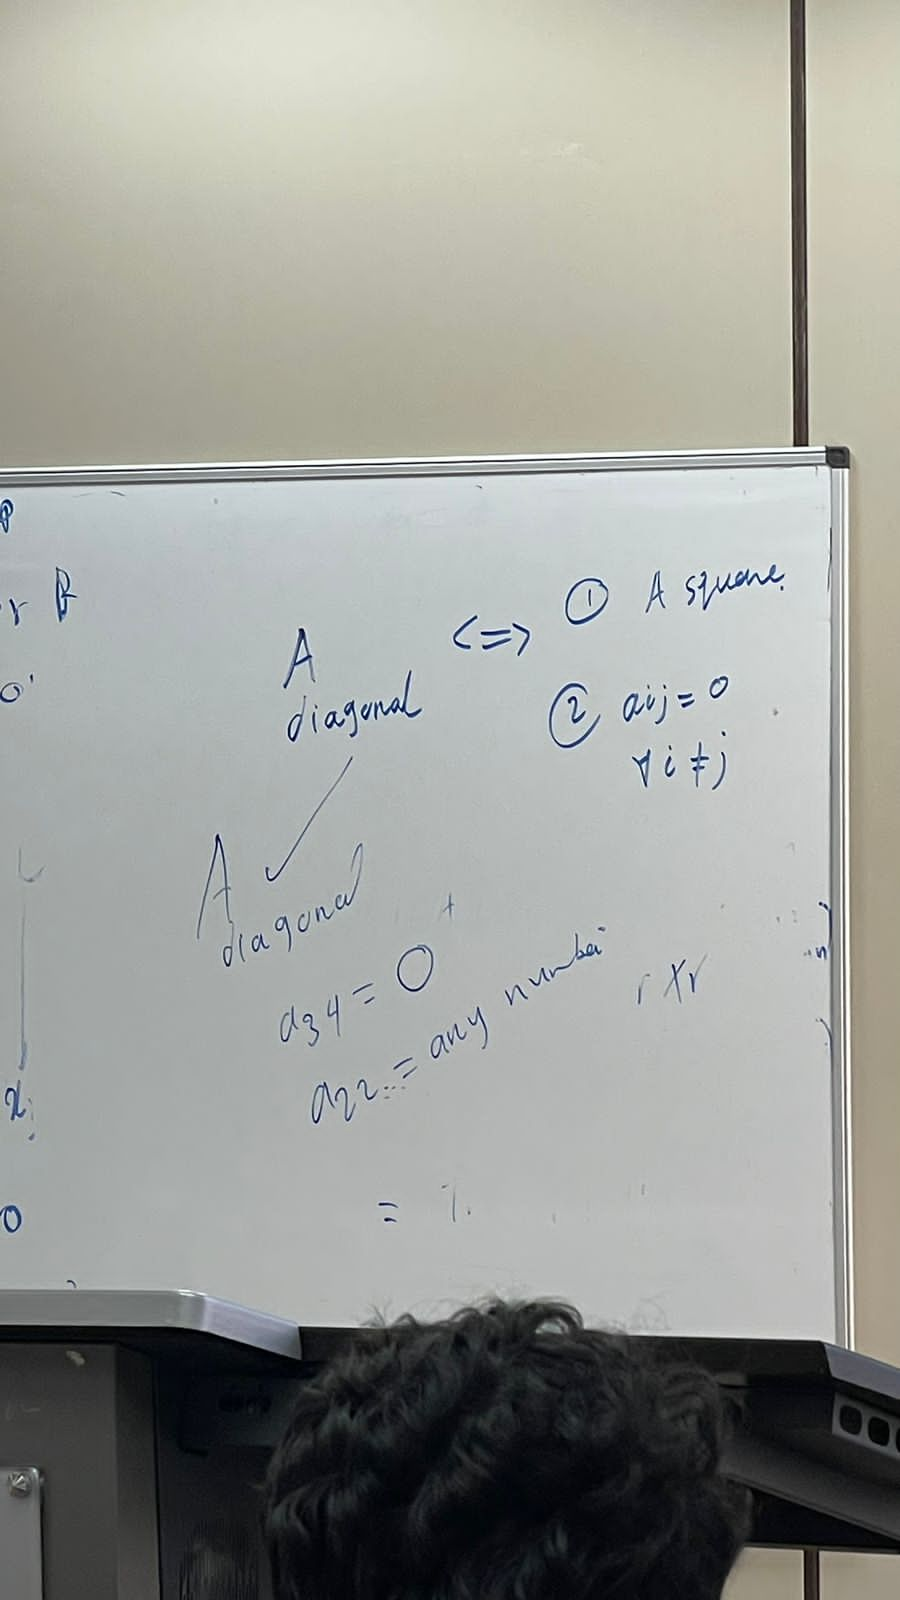 B
A
diagonal
<=> ① A square.
② aij = 0
∀ i ≠ j
A
diagonal
a34 = 0
a22 = any number
r x r
=
x
0